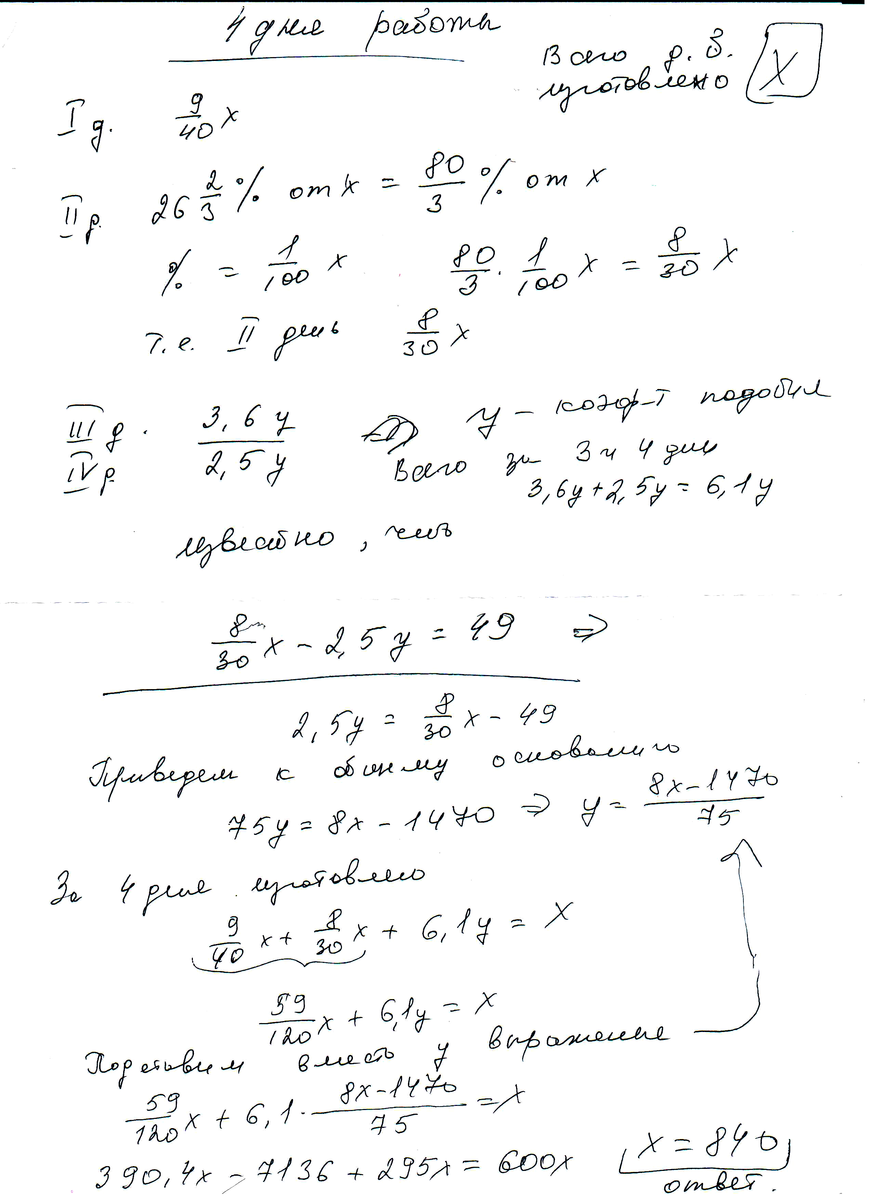 4 дня работы
Всего д. З.
изготовлено X
I д. 9/40 x
II д. 26 2/3 % от x = 80/3 % от x
% = 1/100 x 80/3 · 1/100 x = 8/30 x
т.е. II день 8/30 x
III д. 3,6y y – коэф-т подобия
IV д. 2,5y Всего за 3 и 4 дни
3,6y + 2,5y = 6,1y
известно, что
8/30 x – 2,5y = 49 ⇒
2,5y = 8/30 x – 49
Приведем к общему основанию
75y = 8x – 1470 ⇒ y = 8x–1470/75
За 4 дня изготовлено
9/40 x + 8/30 x + 6,1y = x
59/120 x + 6,1y = x
Подставим вместо y выражение
59/120 x + 6,1 · 8x–1470/75 = x
390,4x – 7136 + 295x = 600x x = 840
ответ.